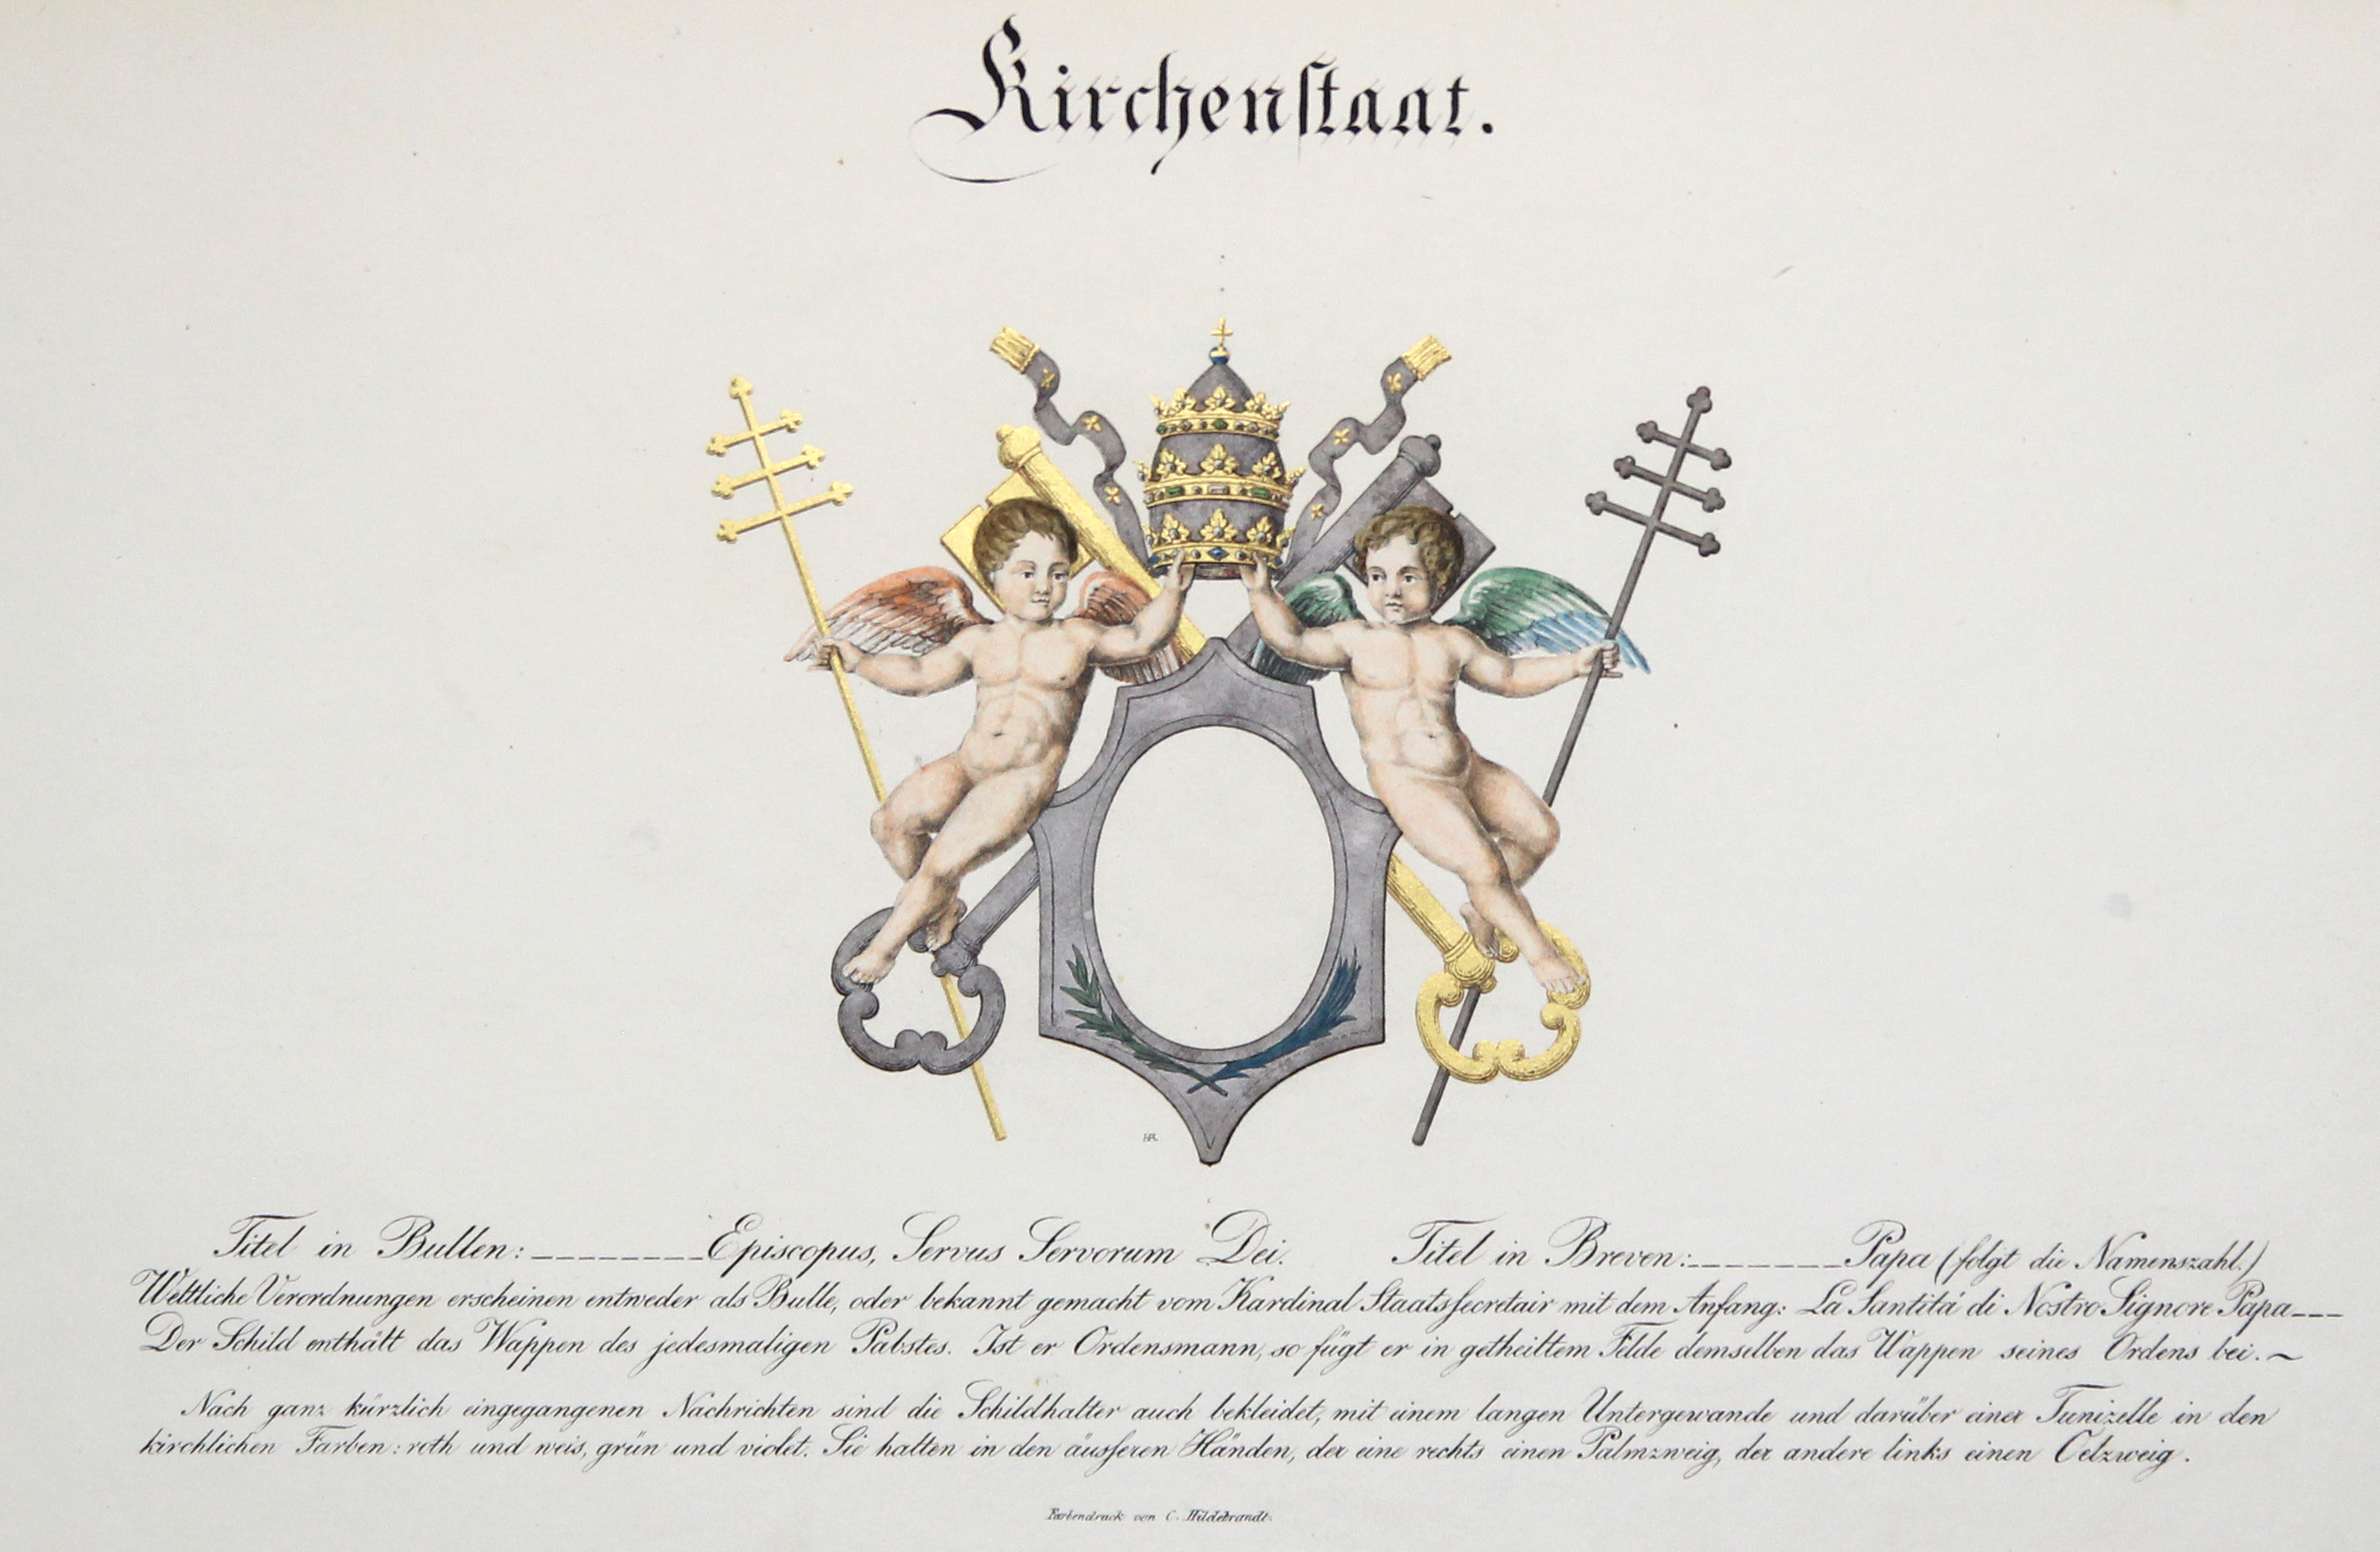 Kirchenstaat.
Titel in Bullen: ________Episcopus, Servus Servorum Dei. Titel in Breven:________Papa (folgt die Namenszahl.)
Weltliche Verordnungen erscheinen entweder als Bulle, oder bekannt gemacht vom Kardinal Staatssecretair mit dem Anfang: La Santitá di Nostro Signore Papa___
Der Schild enthält das Wappen des jedesmaligen Pabstes. Ist er Ordensmann, so fügt er in getheiltem Felde demselben das Wappen seines Ordens bei.~
Nach ganz kürzlich eingegangenen Nachrichten sind die Schildhalter auch bekleidet, mit einem langen Untergewande und darüber einer Tunizelle in den
kirchlichen Farben: roth und weis, grün und violet. Sie halten in den äusseren Händen, der eine rechts einen Palmzweig, der andere links einen Oelzweig.
Farbendruck von C. Hildebrandt.